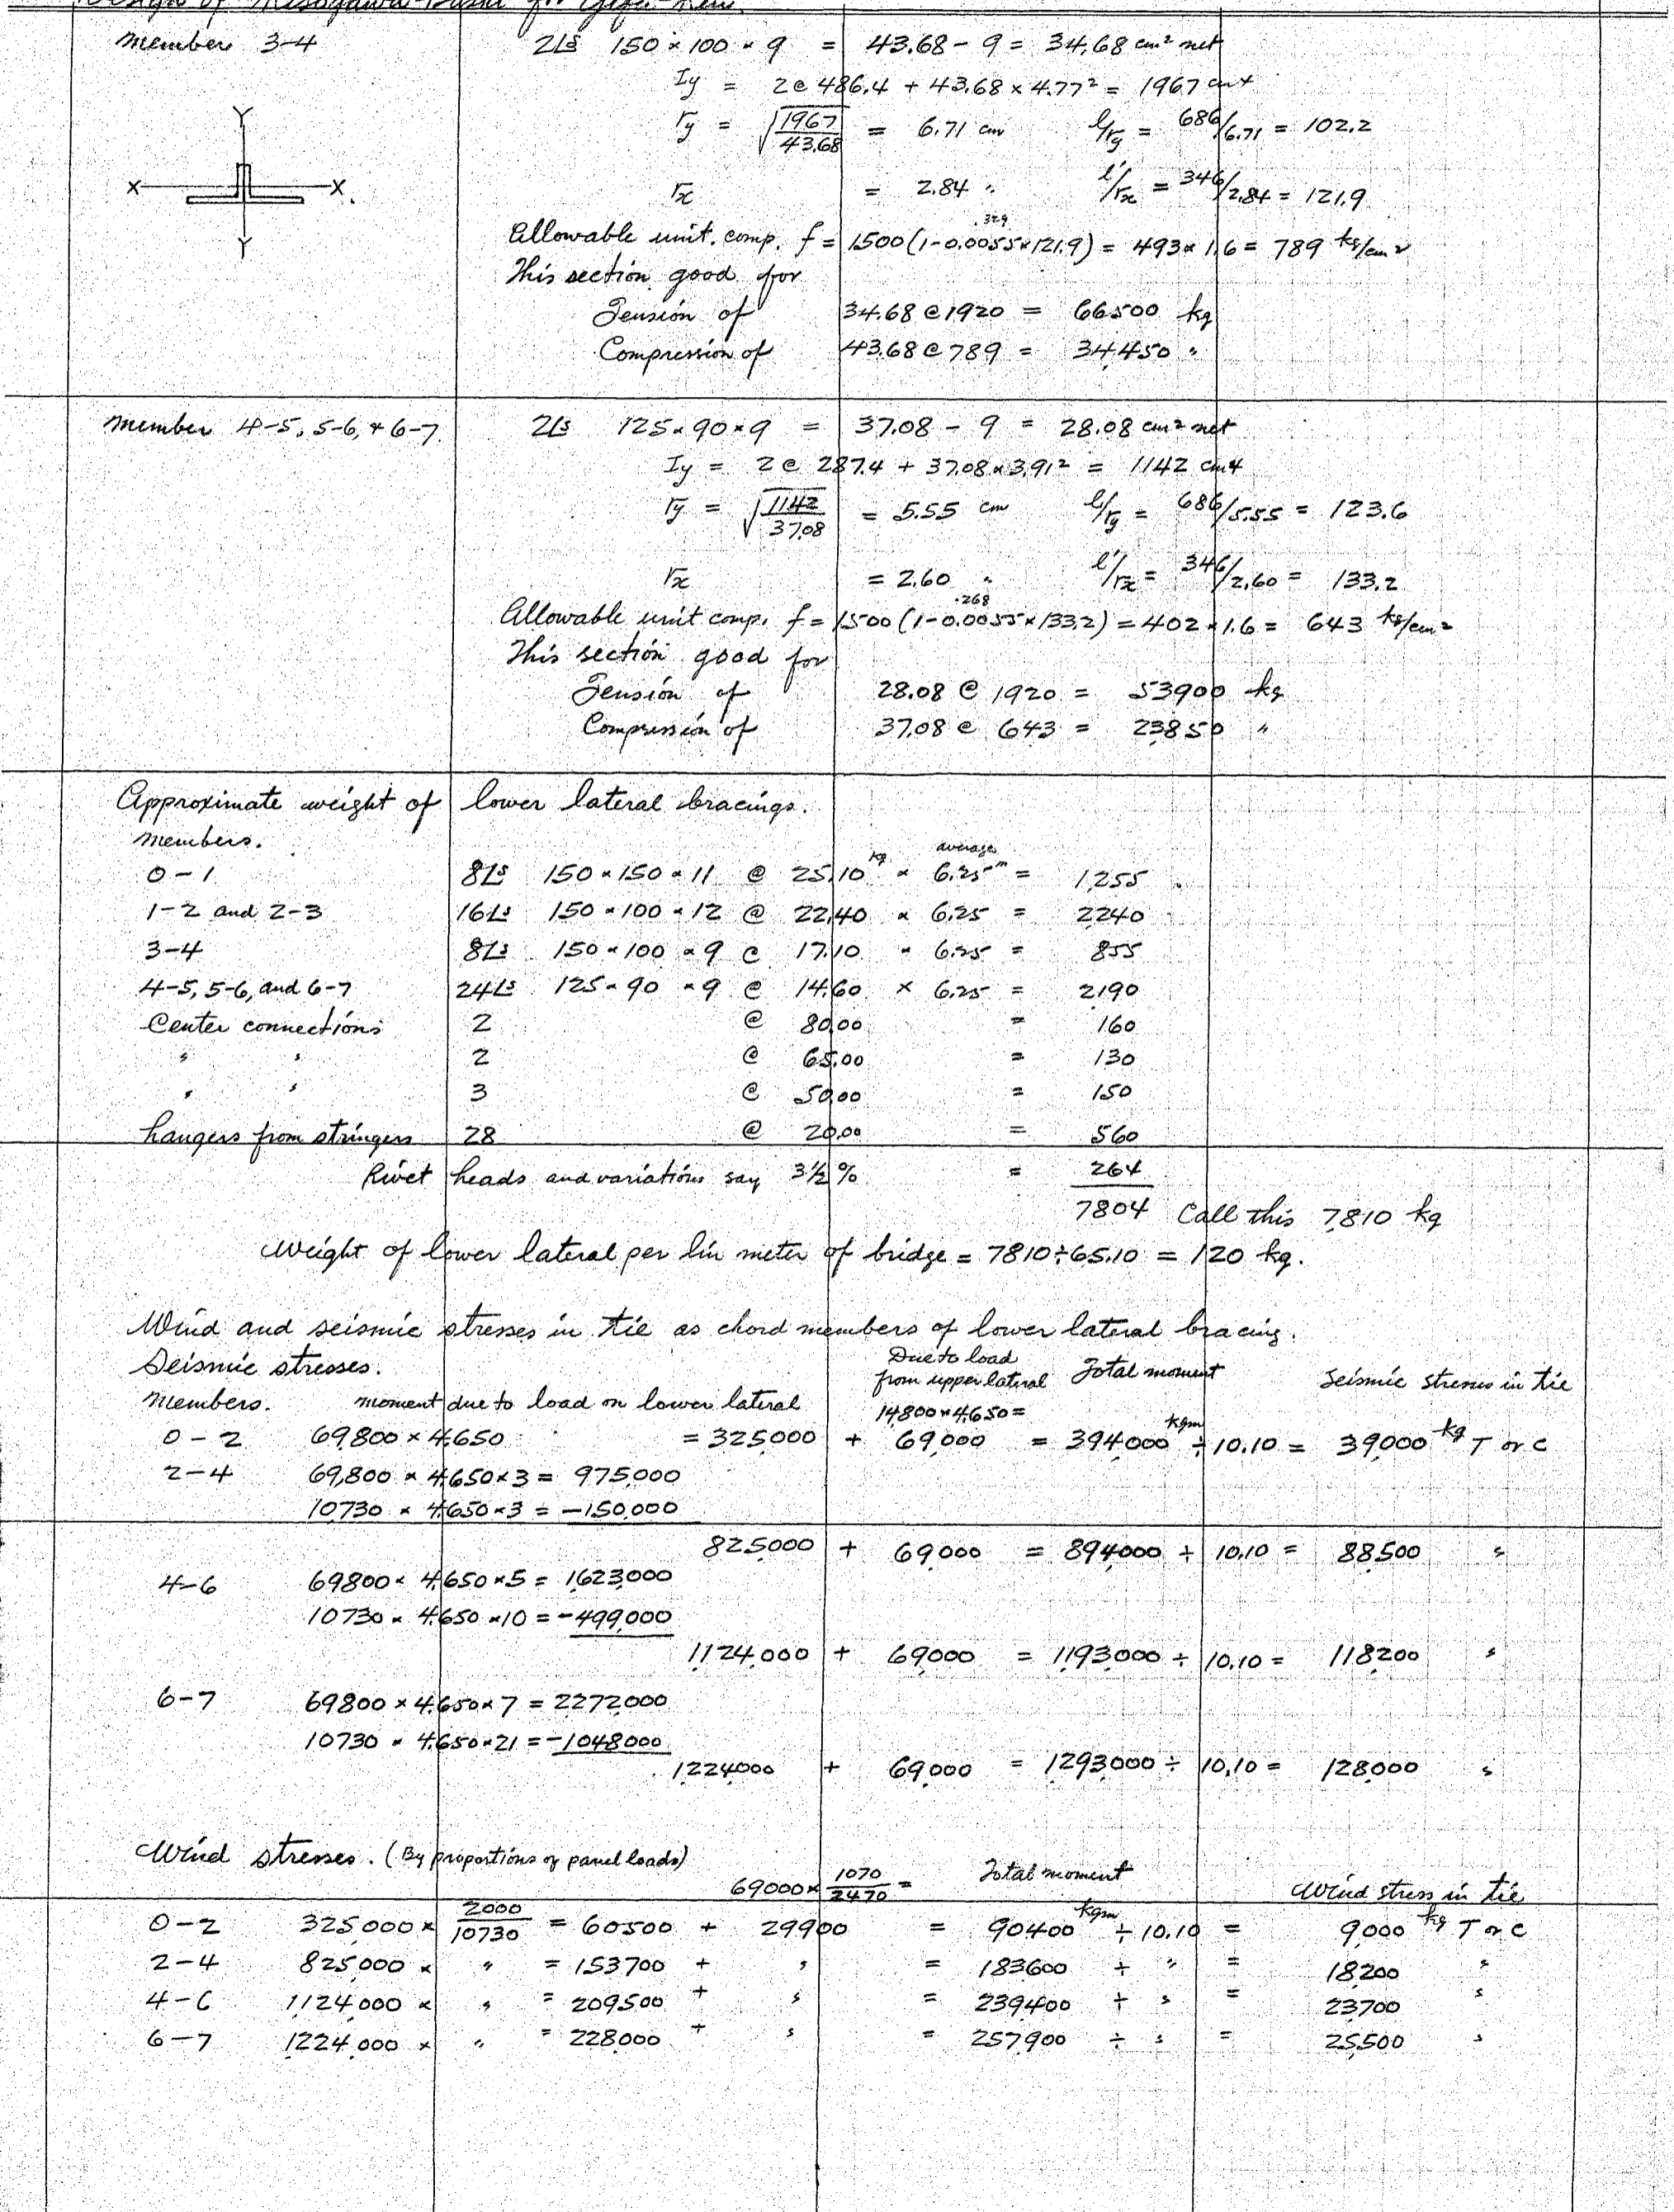 Design of Misogawa-Bashi for Gifu-Ken.
Member 3-4 2Ls 150 × 100 × 9 = 43.68 - 9 = 34.68 cm² net
Iy = 2 @ 486.4 + 43.68 × 4.77² = 1967 cm4
Y
ry = √1967/43.68 = 6.71 cm l/ry = 686/6.71 = 102.2
X X
rx = 2.84 " l'/rx = 346/2.84 = 121.9
Y
.329
Allowable unit. comp. f = 1500 (1-0.0055×121.9) = 493 × 1.6 = 789 kg/cm²
This section good for
Tension of 34.68 @ 1920 = 66500 kg
Compression of 43.68 @ 789 = 34,450 "
Member 4-5, 5-6, + 6-7. 2Ls 125 × 90 × 9 = 37.08 - 9 = 28.08 cm² net
Iy = 2 @ 287.4 + 37.08 × 3.91² = 1142 cm4
ry = √1142/37.08 = 5.55 cm l/ry = 686/5.55 = 123.6
rx = 2.60 " l'/rx = 346/2.60 = 133.2
.268
Allowable unit comp. f = 1500 (1-0.0055×133.2) = 402 × 1.6 = 643 kg/cm²
This section good for
Tension of 28.08 @ 1920 = 53900 kg
Compression of 37.08 @ 643 = 23850 "
Approximate weight of lower lateral bracings.
Members. average
0-1 8Ls 150 × 150 × 11 @ 25.10 kg × 6.25 m = 1,255
1-2 and 2-3 16Ls 150 × 100 × 12 @ 22.40 × 6.25 = 2240
3-4 8Ls 150 × 100 × 9 @ 17.10 × 6.25 = 855
4-5, 5-6, and 6-7 24Ls 125 × 90 × 9 @ 14.60 × 6.25 = 2190
Center connections 2 @ 80.00 = 160
" " 2 @ 65.00 = 130
" " 3 @ 50.00 = 150
hangers from stringers 28 @ 20.00 = 560
Rivet heads and variations say 3½ % = 264
7804 Call this 7,810 kg
Weight of lower lateral per lin meter of bridge = 7810÷65.10 = 120 kg.
Wind and seismic stresses in tie as chord members of lower lateral bracing.
Seismic stresses. Due to load from upper lateral Total moment Seismic stresses in tie
Members. moment due to load on lower lateral 14,800 × 4.650 =
0-2 69,800 × 4.650 = 325,000 + 69,000 = 394,000 kgm ÷ 10.10 = 39,000 kg T or C
2-4 69,800 × 4.650 × 3 = 975,000
10730 × 4.650 × 3 = -150,000
825,000 + 69,000 = 894,000 ÷ 10.10 = 88,500 "
4-6 69800 × 4.650 × 5 = 1,623,000
10730 × 4.650 × 10 = -499,000
1,124,000 + 69,000 = 1,193,000 ÷ 10.10 = 118,200 "
6-7 69800 × 4.650 × 7 = 2,272,000
10730 × 4.650 × 21 = -1,048,000
1,224,000 + 69,000 = 1,293,000 ÷ 10.10 = 128,000 "
Wind stresses. (By proportions of panel loads)
69000 × 1070/2470 = Total moment Wind stress in tie
0-2 325,000 × 2000/10730 = 60500 + 29900 = 90400 kgm ÷ 10.10 = 9,000 kg T or C
2-4 825,000 × " = 153700 + " = 183600 ÷ " = 18,200 "
4-6 1,124,000 × " = 209500 + " = 239400 ÷ " = 23,700 "
6-7 1,224,000 × " = 228,000 + " = 257,900 ÷ " = 25,500 "